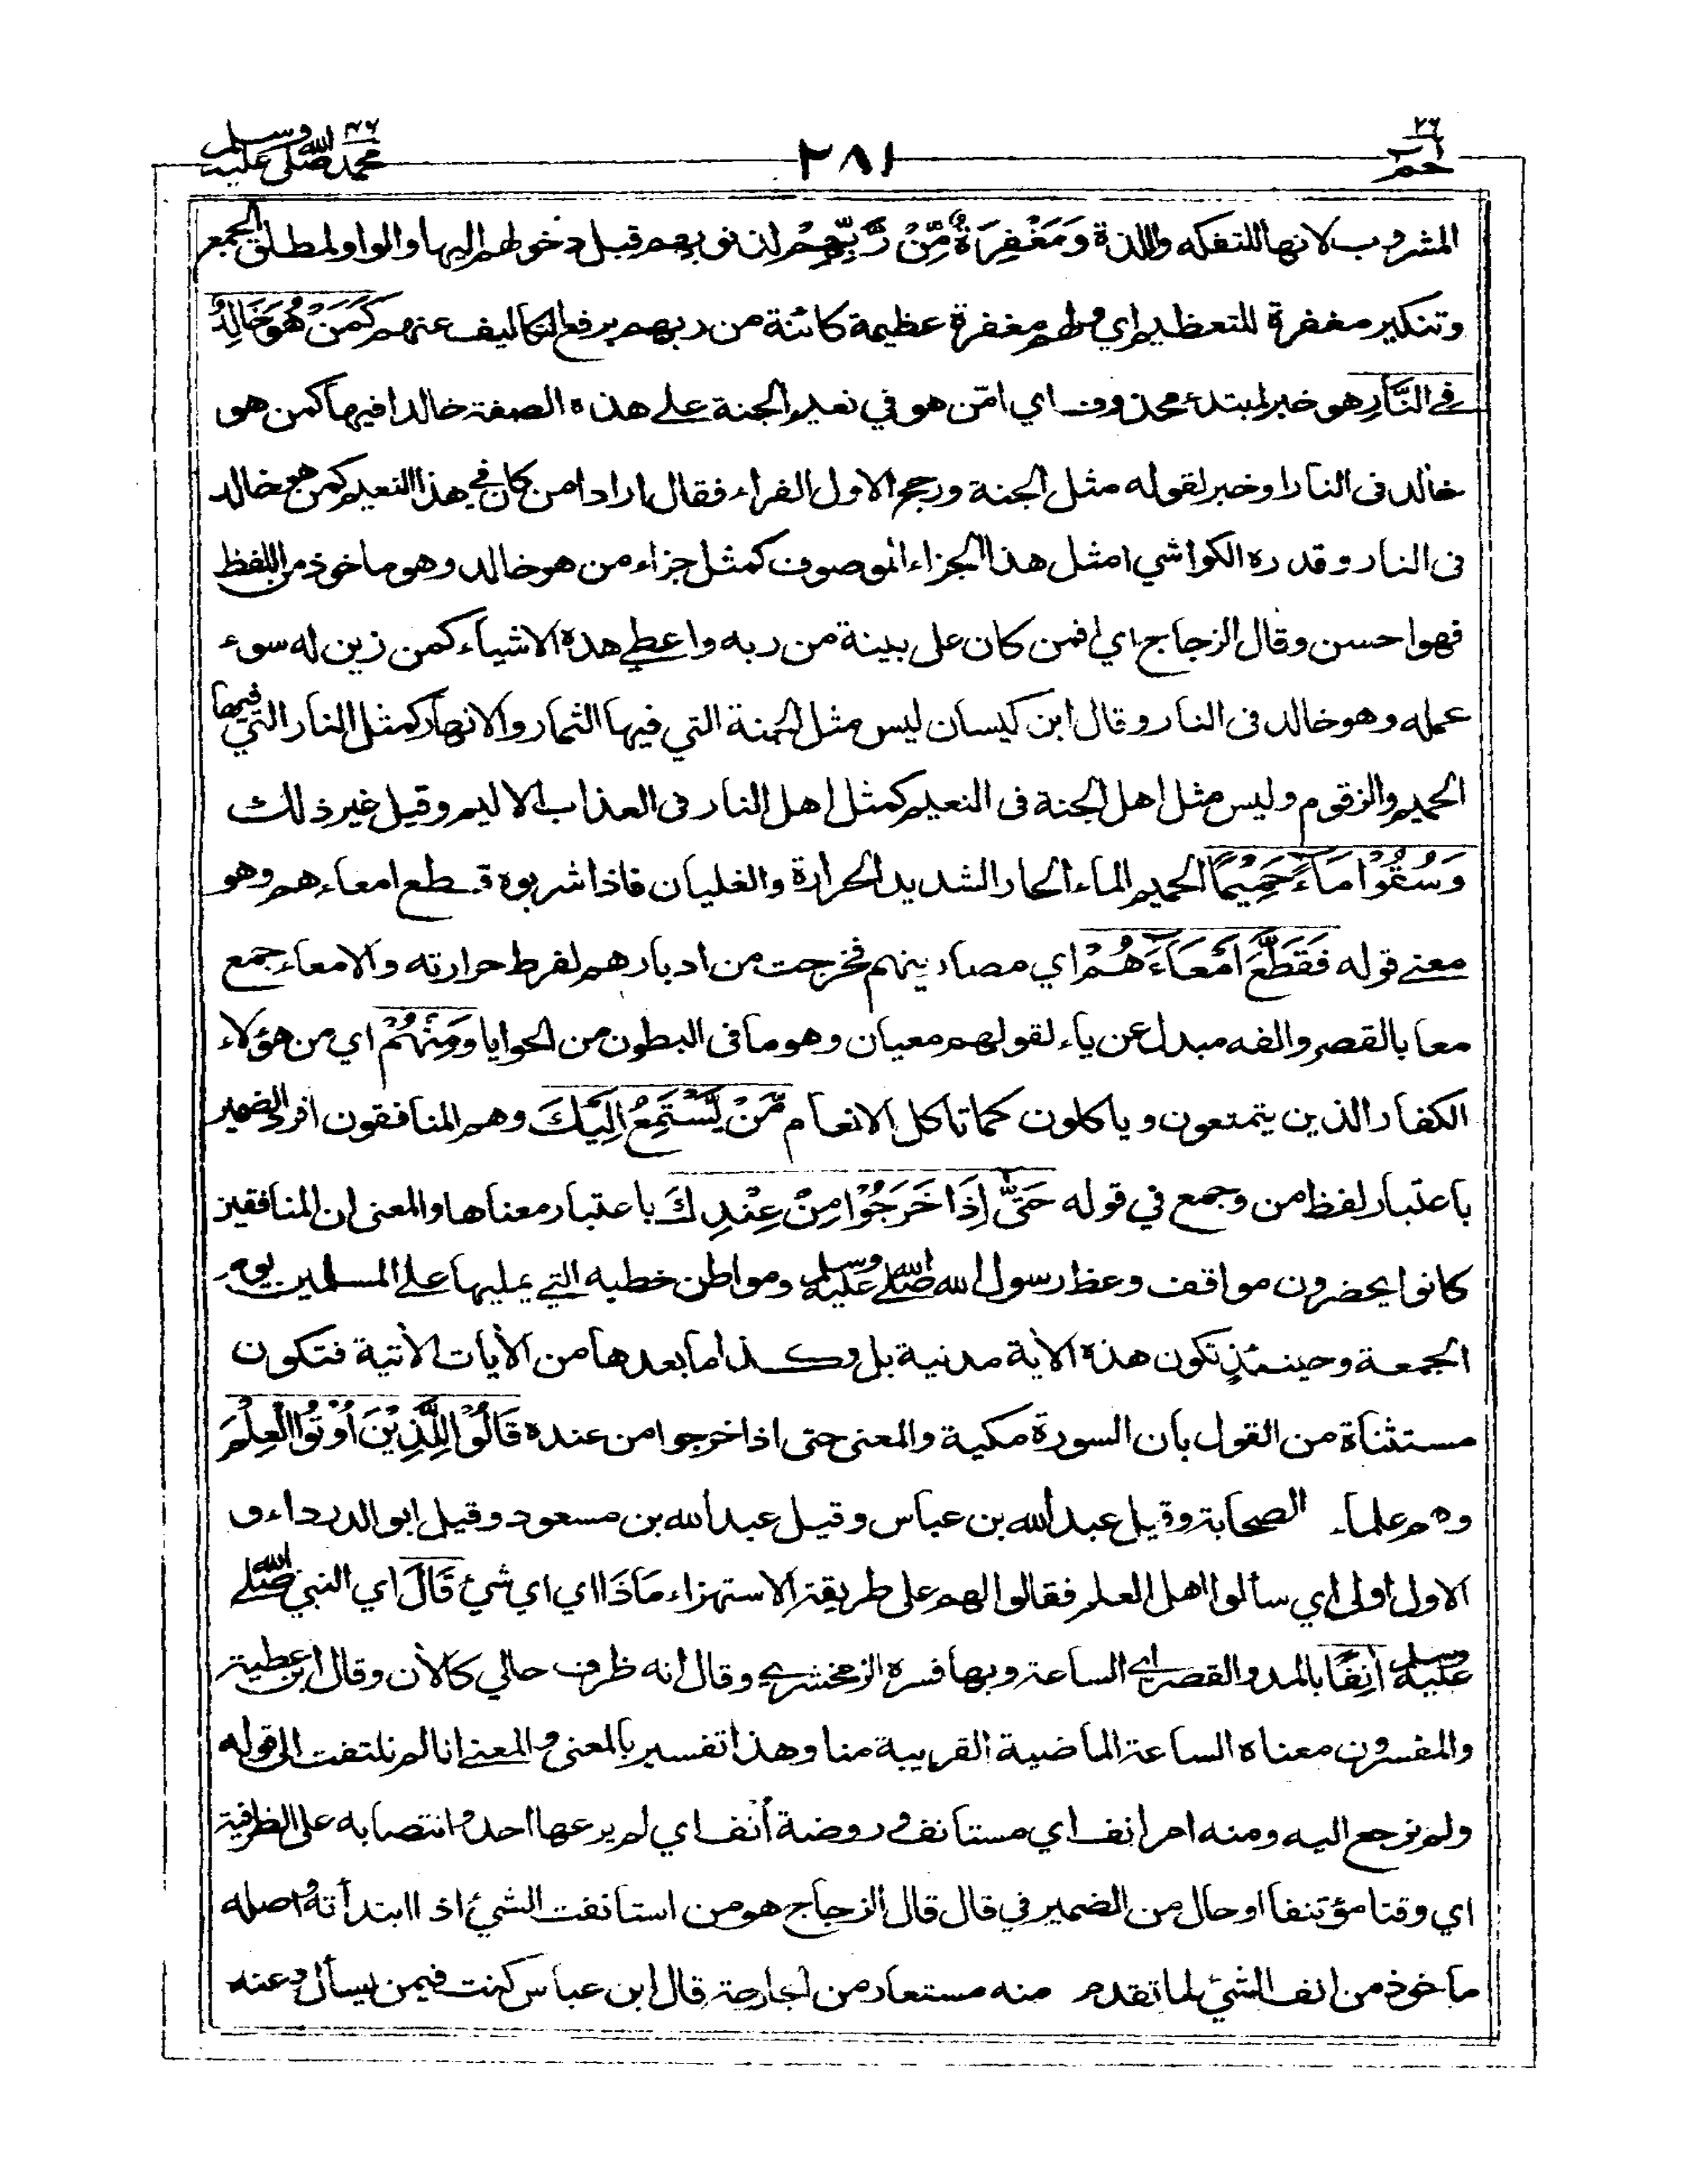 ٢٦ حم
٢٨١
٤٧ محمد صلى الله عليه وسلم
المشروب لانها للتفكه واللذة وَمَغْفِرَةٌ مِّنْ رَّبِّهِمْ لذنوبهم قبل دخولهم اليها والواو لمطلق الجمع
وتنكير مغفرة للتعظيم اي ولهم مغفرة عظيمة كائنة من ربهم برفع التكاليف عنهم كَمَنْ هُوَ خَالِدٌ
فِي النَّارِ هو خبر لمبتدء محذوف اي امّن هو في نعيم الجنة على هذه الصفة خالدا فيها كمن هو
خالد فى النار او خبر لقوله مثل الجنة ورجح الاول الفراء فقال اراد امن كان في هذا النعيم كمن هو خالد
فى النار وقدره الكواشي امثل هذا الجزاء الموصوف كمثل جزاء من هو خالد وهو ماخوذ من اللفظ
فهو احسن وقال الزجاج اي افمن كان على بينة من ربه واعطي هذه الاشياء كمن زين له سوء
عمله وهو خالد فى النار وقال ابن كيسان ليس مثل الجنة التي فيها الثمار والانهار كمثل النار التي فيها
الحميم والزقوم وليس مثل اهل الجنة فى النعيم كمثل اهل النار فى العذاب الاليم وقيل غير ذلك
وَسُقُوْا مَاءً حَمِيْمًا الحميم الماء الحار الشديد الحرارة والغليان فاذا شربوه قطع امعاءهم وهو
معنى قوله فَقَطَّعَ اَمْعَاءَهُمْ اي مصارينهم فخرجت من ادبارهم لفرط حرارته والامعاء جمع
معا بالقصر والفه مبدل عن ياء لقولهم معيان وهو ما فى البطون من الحوايا وَمِنْهُمْ اي من هؤلاء
الكفار الذين يتمتعون وياكلون كما تاكل الانعام مَّنْ يَّسْتَمِعُ اِلَيْكَ وهم المنافقون افرد الضمير
باعتبار لفظ من وجمع في قوله حَتّٰى اِذَا خَرَجُوْا مِنْ عِنْدِكَ باعتبار معناها والمعنى ان المنافقين
كانوا يحضرون مواقف وعظ رسول الله صلى الله عليه وسلم ومواطن خطبه التي يمليها على المسلمين يوم
الجمعة وحينئذٍ تكون هذه الأية مدنية بل وكذا ما بعدها من الأيات الأتية فتكون
مستثناة من القول بأن السورة مكية والمعنى حتى اذا خرجوا من عنده قَالُوْا لِلَّذِيْنَ اُوْتُوا الْعِلْمَ
وهم علماء الصحابة وقيل عبد الله بن عباس وقيل عبد الله بن مسعود وقيل ابو الدرداء و
الاول اولى اي سألوا اهل العلم فقالوا لهم على طريقة الاستهزاء مَاذَا اي اي شيء قَالَ اي النبي صلى الله
عليه وسلم اٰنِفًا بالمد والقصر اي الساعة وبها فسره الزمخشري وقال انه ظرف حالي كالأن وقال ابن عطية
والمفسرون معناه الساعة الماضية القريبة منا وهذا تفسير بالمعنى والمعنى انا لم نلتفت الى قوله
ولم نرجع اليه ومنه امر انف اي مستانف وروضة أنف اي لم يرعها احد وانتصابه على الظرفية
اي وقتا مؤتنفا او حال من الضمير في قال قال الزجاج هو من استانفت الشيء اذا ابتدأته واصله
ماخوذ من انف الشيء لما تقدم منه مستعار من الجارحة قال ابن عباس كنت فيمن يسأل وعنه